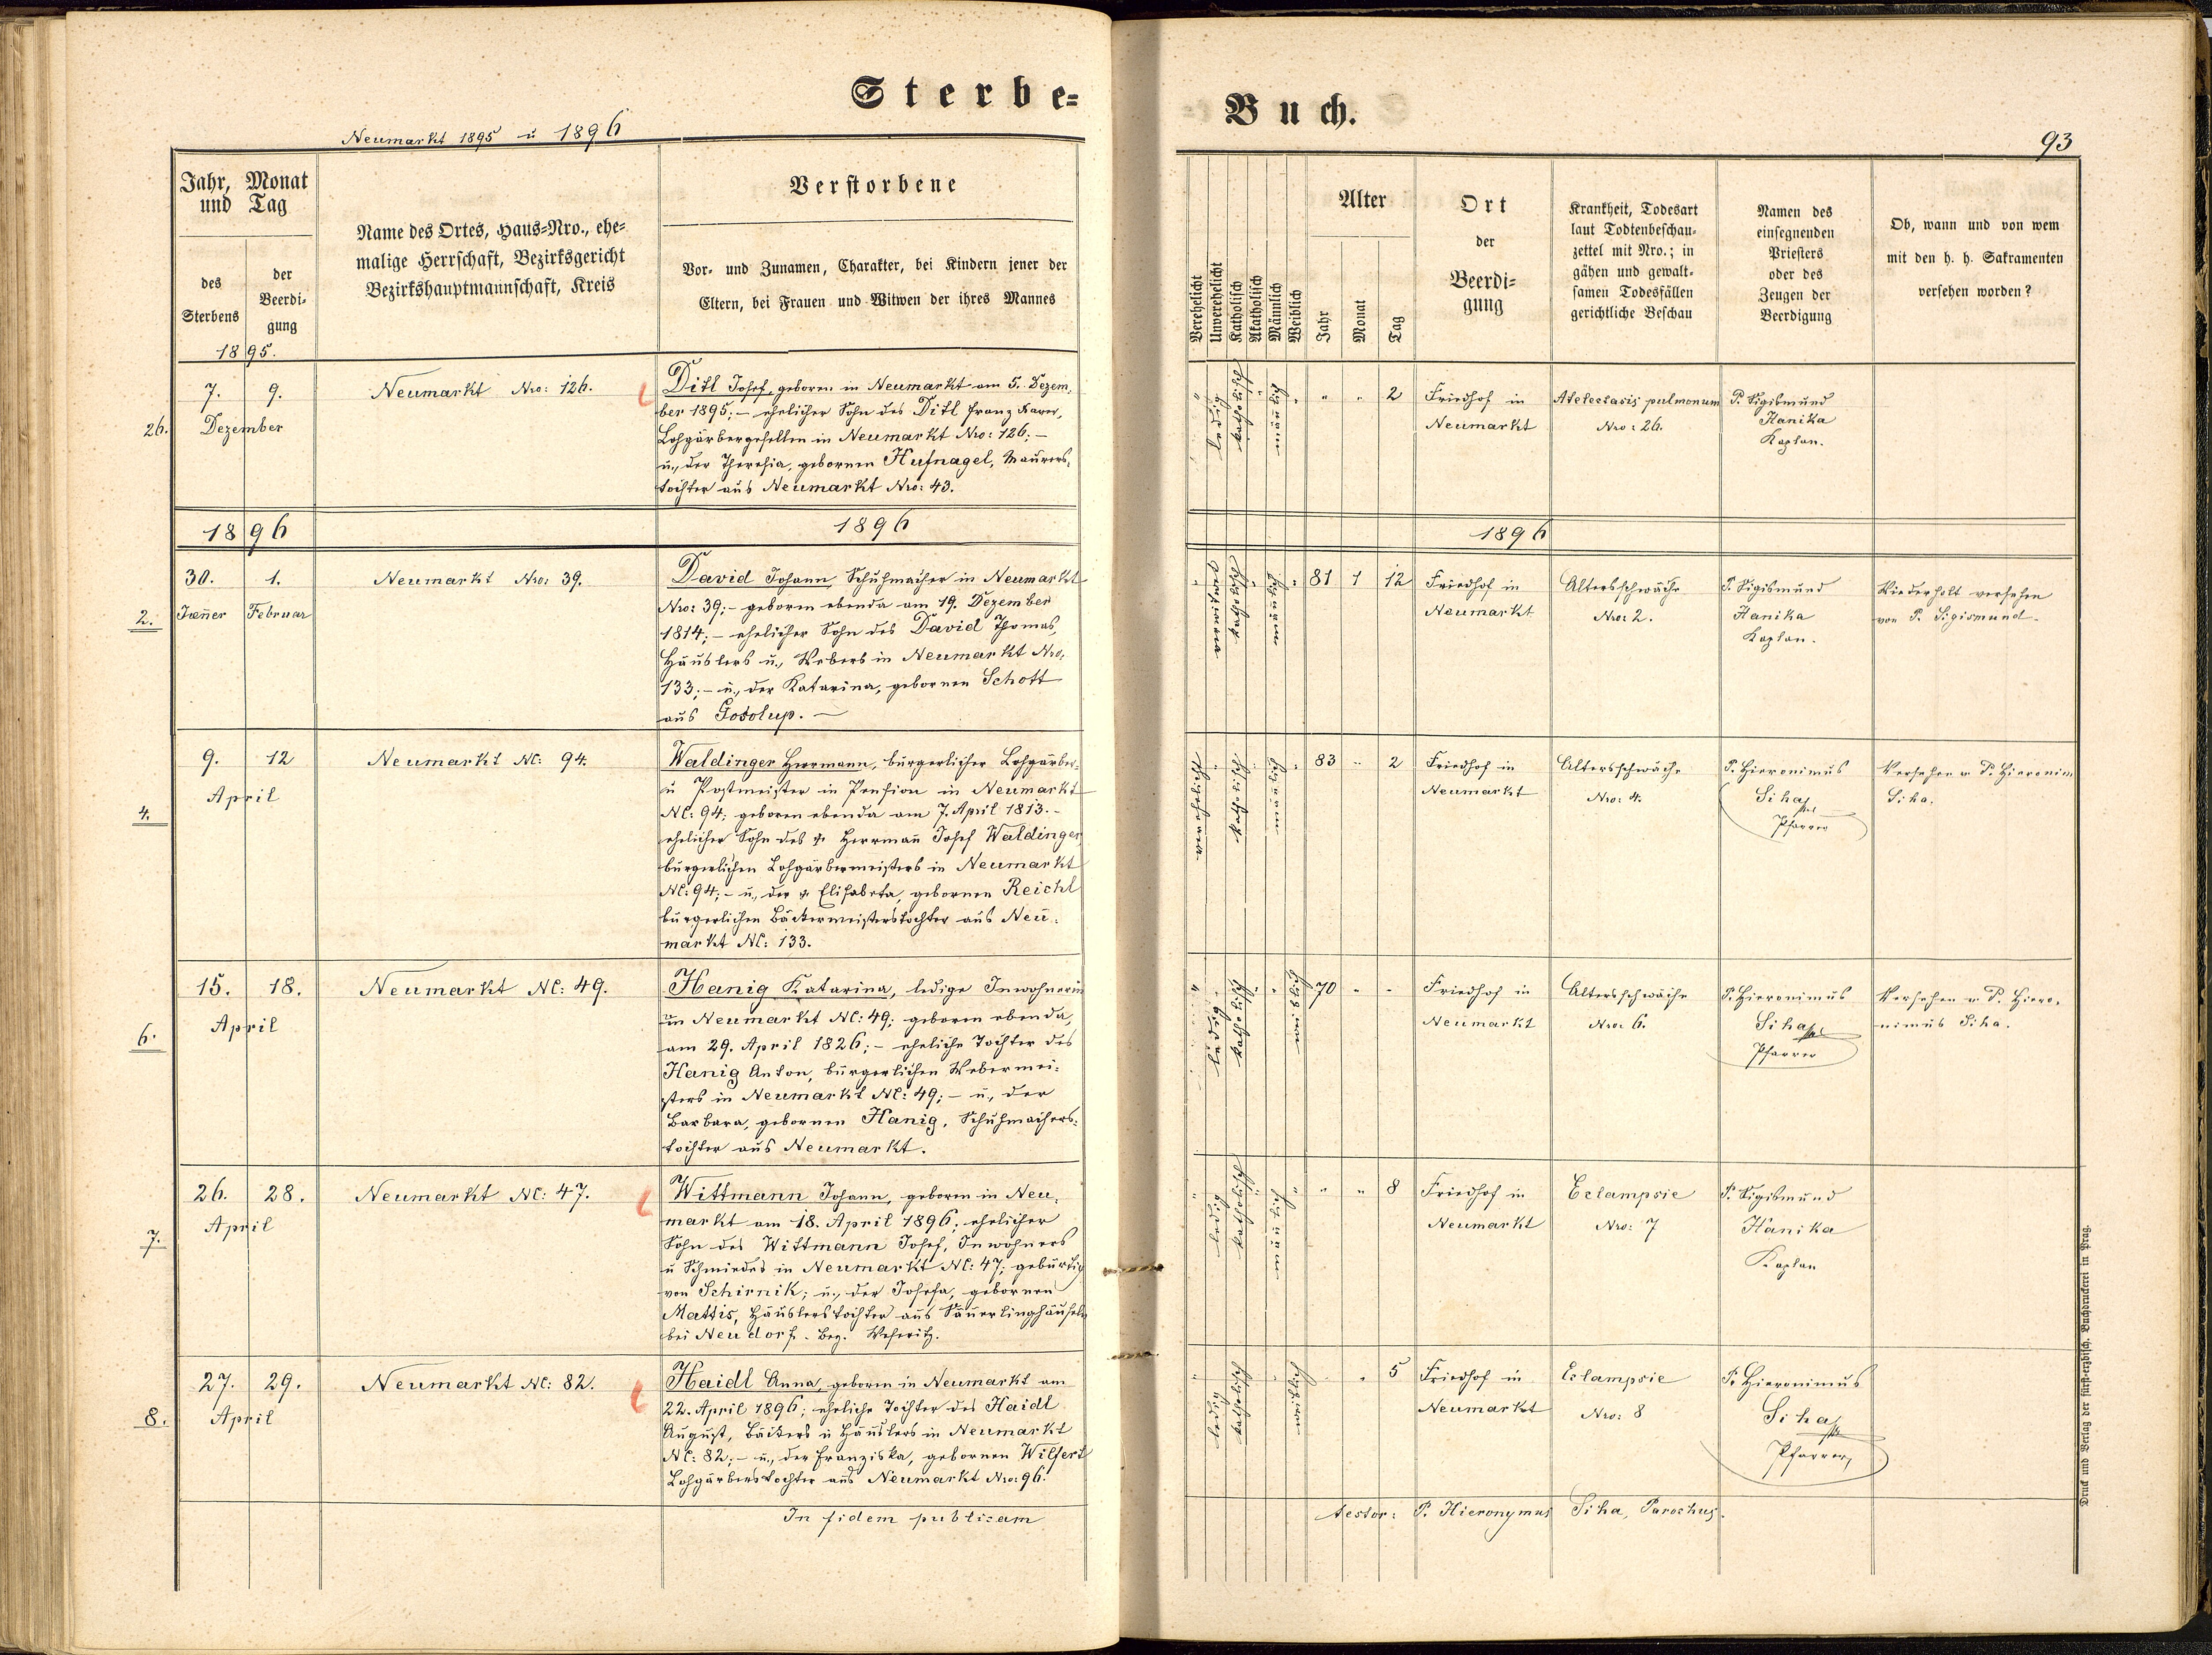 Sterbe=
Neumarkt 1895 u 1896
Jahr, Monat
und Tag
des
Sterbens
der
Beerdi=
gung
Name des Ortes, Haus=Nro., ehe=
malige Herrschaft, Bezirksgericht
Bezirkshauptmannschaft, Kreis
Verstorbene
Vor= und Zunamen, Charakter, bei Kindern jener der
Eltern, bei Frauen und Witwen der ihres Mannes
1895.
26.
7. 9.
Dezember
Neumarkt Nro: 126.
Ditl Josef, geboren in Neumarkt am 5. Dezem=
ber 1895; – ehelicher Sohn des Ditl Franz Xaver,
Lohgärbergesellen in Neumarkt Nro: 126; –
u., der Theresia, gebornen Hufnagel, Maurers=
tochter aus Neumarkt Nro: 43.
1896
1896
2.
30. 1.
Jänner Februar
Neumarkt Nro: 39.
David Johann, Schuhmacher in Neumarkt
Nro: 39; – geboren ebenda am 19. Dezember
1814; – ehelicher Sohn des David Thomas,
Häuslers u., Webers in Neumarkt Nro:
133; – u., der Katarina, gebornen Schott
aus Gosolup. –
4.
9. 12
April
Neumarkt NC: 94.
Waldinger Herrmann, bürgerlicher Lohgärber=
u Postmeister in Pension in Neumarkt
NC: 94; geboren ebenda am 7. April 1813. –
ehelicher Sohn des Herrmañ Josef Waldinger,
bürgerlichen Lohgärbermeisters in Neumarkt
NC: 94; – u., der Elisabeta, gebornen Reichl
bürgerlichen Bäckermeisterstochter aus Neu=
markt NC: 133.
6.
15. 18.
April
Neumarkt NC: 49.
Hanig Katarina, ledige Inwohnerin
in Neumarkt NC: 49; geboren ebenda,
am 29. April 1826; – eheliche Tochter des
Hanig Anton, bürgerlichen Webermei=
sters in Neumarkt NC: 49; – u., der
Barbara, gebornen Hanig, Schuhmachers=
tochter aus Neumarkt.
7.
26. 28.
April
Neumarkt NC: 47.
Wittmann Johann, geboren in Neu=
markt am 18. April 1896; ehelicher
Sohn des Wittmann Josef, Inwohners
u Schmiedes in Neumarkt NC: 47; gebürtig
von Schirnik; u., der Josefa, gebornen
Mattis, Häuslerstochter aus Säuerlinghäuseln
bei Neudorf. Bez. Weseritz.
8.
27. 29.
April
Neumarkt NC: 82.
Haidl Anna, geboren in Neumarkt am
22. April 1896; eheliche Tochter des Haidl
August, Bäckers u Häuslers in Neumarkt
NC: 82; – u., der Franziska, gebornen Wilfert
Lohgärberstochter aus Neumarkt Nro: 96.
In fidem publicam
Buch.
93
Verehelicht
Unverehelicht
Katholisch
Akatholisch
Männlich
Weiblich
Alter
Jahr
Monat
Tag
Ort
der
Beerdi=
gung
Krankheit, Todesart
laut Todtenbeschau=
zettel mit Nro.; in
gähen und gewalt=
samen Todesfällen
gerichtliche Beschau
Namen des
einsegnenden
Priesters
oder des
Zeugen der
Beerdigung
Ob, wann und von wem
mit den h. h. Sakramenten
versehen worden?
ledig
katholisch
männlich
" " 2
Friedhof in
Neumarkt
Atelectasis pulmonum
Nro: 26.
P. Sigismund
Hanika
Kaplan.
1896
verwitwet
katholisch
männlich
81 1 12
Friedhof in
Neumarkt
Altersschwäche
Nro: 2.
P. Sigismund
Hanika
Kaplan.
Wiederholt versehen
von P. Sigismund.
katholisch
männlich
83 " 2
Friedhof in
Neumarkt
Altersschwäche
Nro: 4.
P. Hieronimus
Siha
Pfarrer
Versehen v P. Hieronim
Siha.
ledig
katholisch
weiblich
70 " "
Friedhof in
Neumarkt
Altersschwäche
Nro: 6.
P. Hieronimus
Siha
Pfarrer
Versehen v P. Hiero=
nimus Siha.
ledig
katholisch
männlich
" " 8
Friedhof in
Neumarkt
Eclampsie
Nro: 7
P. Sigismund
Hanika
Kaplan
ledig
katholisch
weiblich
5
Friedhof in
Neumarkt
Eclampsie
Nro: 8
P. Hieronimus
Siha
Pfarrer
testor: P. Hieronymus Siha, Parochus.
Druck und Verlag der fürst=erzbisch. Buchdruckerei in Prag.